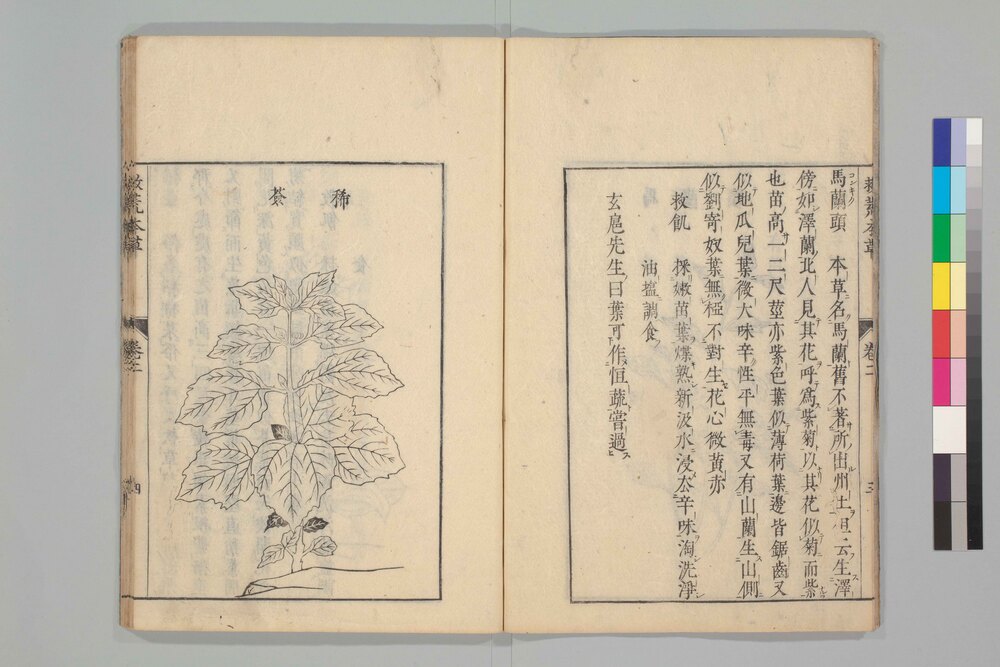 馬蘭頭 本草名馬蘭舊不著所出州土但云生澤
傍如澤蘭北人見其花呼爲紫菊以其花似菊而紫
也苗高一二尺莖亦紫色葉似薄荷葉邊皆鋸齒又
似地瓜兒葉微大味辛性平無毒又有山蘭生山側
似劉寄奴葉無椏不對生花心微黄亦
救飢 採嫩苗葉煠熟新汲水浸去辛味淘洗淨
油塩調食
玄扈先生曰葉可作恒蔬嘗過
救荒本草
卷二
三
稀
薟
救荒本草
卷二
四